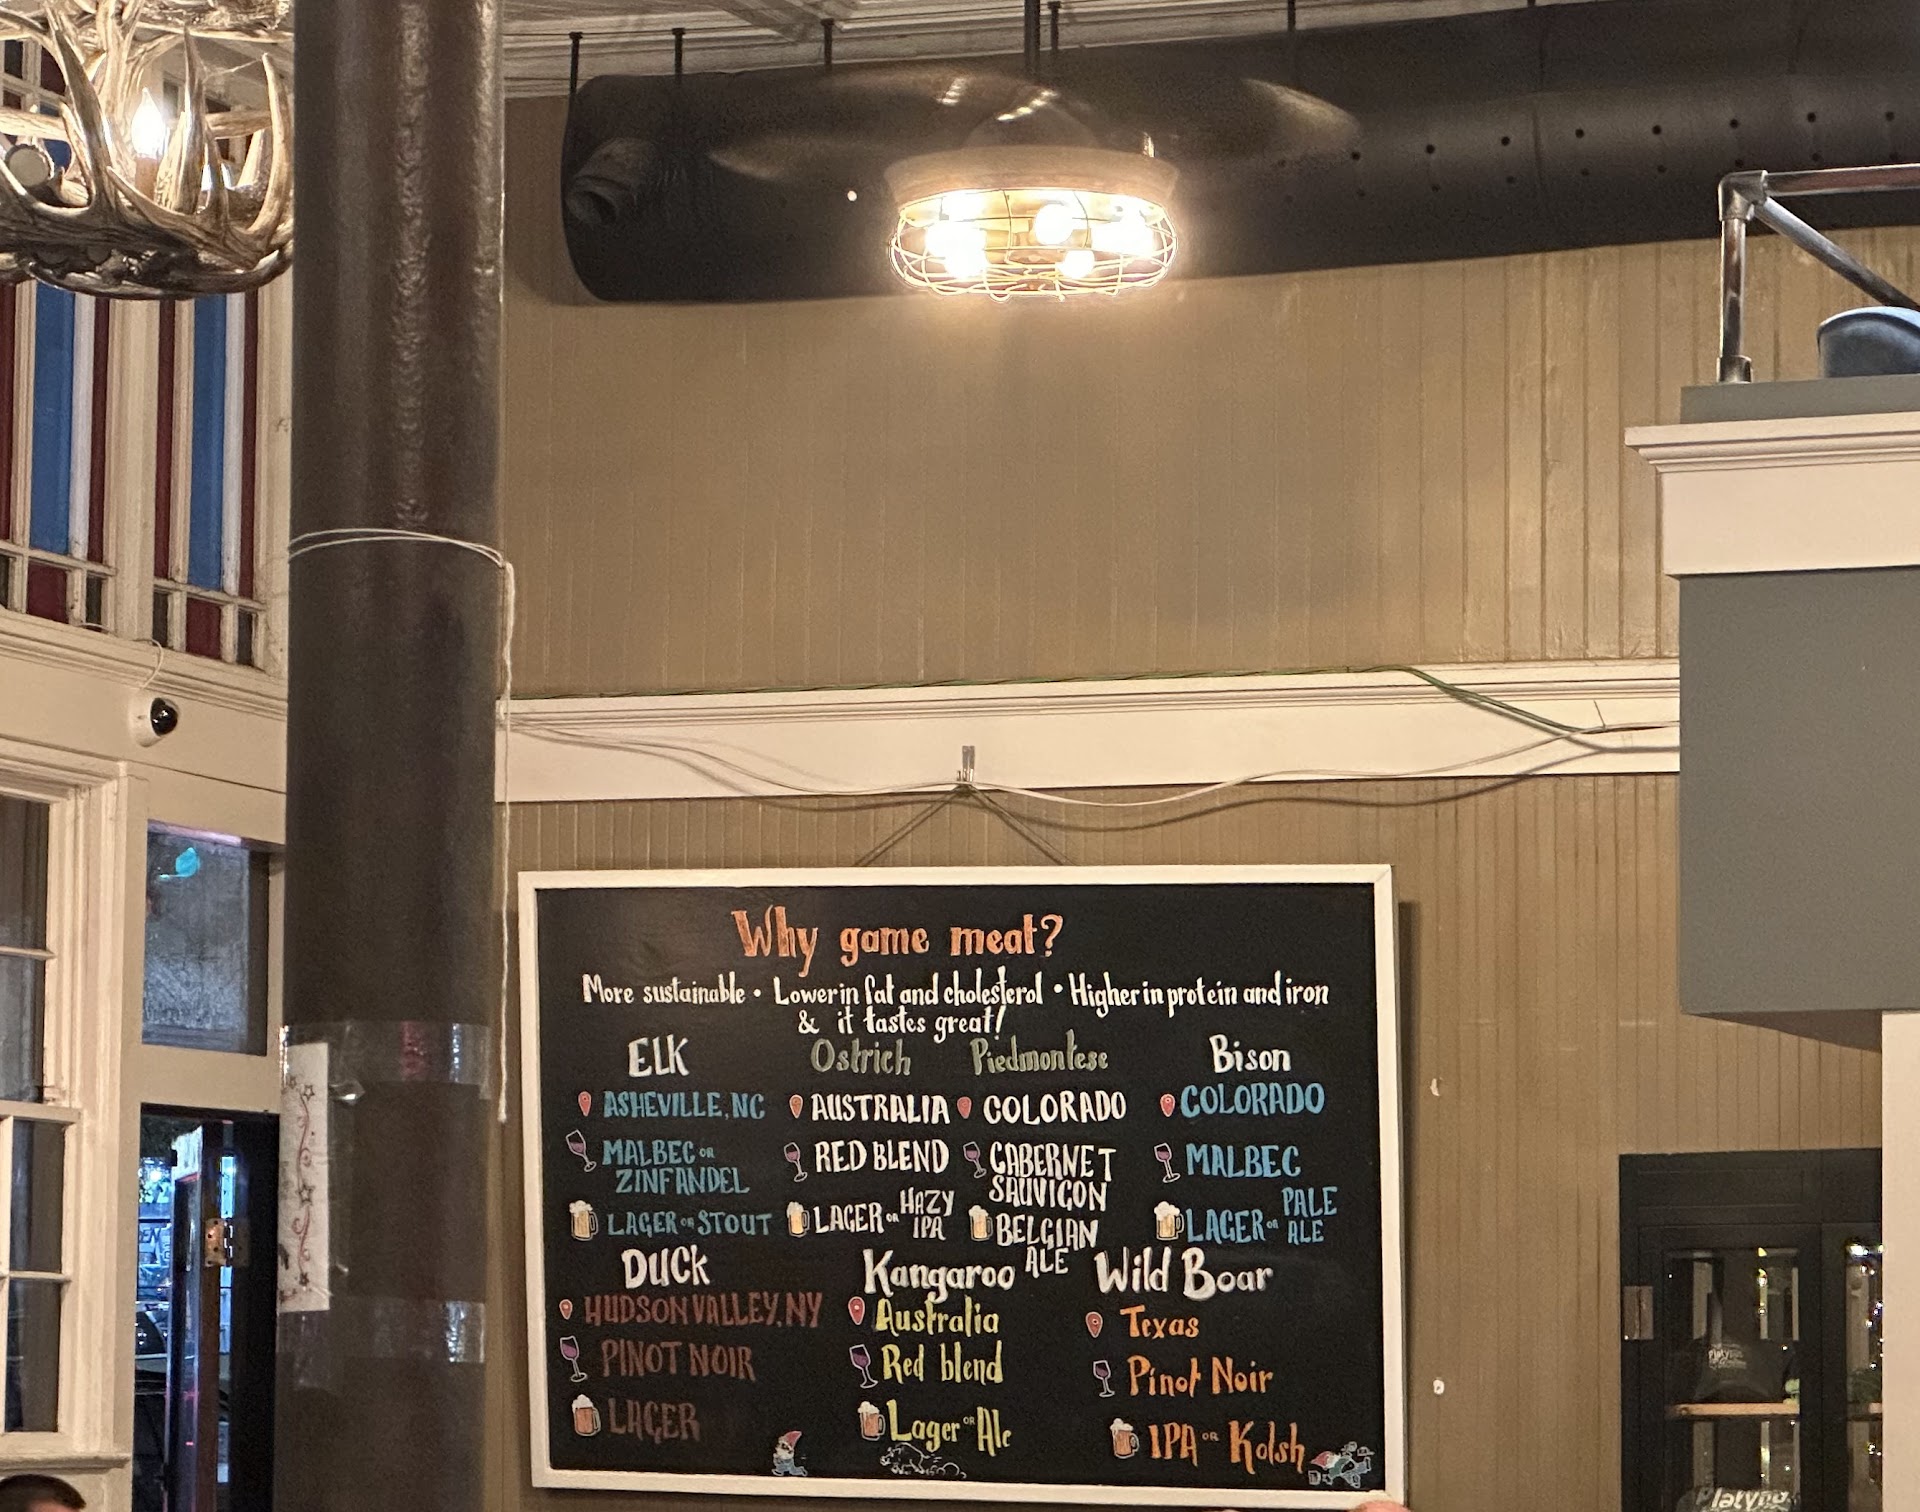 Why game meat?
More sustainable • Lower in fat and cholesterol • Higher in protein and iron
& it tastes great!
ELK
ASHEVILLE, NC
MALBEC OR
ZINFANDEL
LAGER OR STOUT
Ostrich
AUSTRALIA
RED BLEND
LAGER OR HAZY
IPA
Piedmontese
COLORADO
CABERNET
SAUVIGON
BELGIAN
ALE
Bison
COLORADO
MALBEC
LAGER OR PALE
ALE
DUCK
HUDSON VALLEY, NY
PINOT NOIR
LAGER
Kangaroo
Australia
Red blend
Lager OR Ale
Wild Boar
Texas
Pinot Noir
IPA OR Kolsh